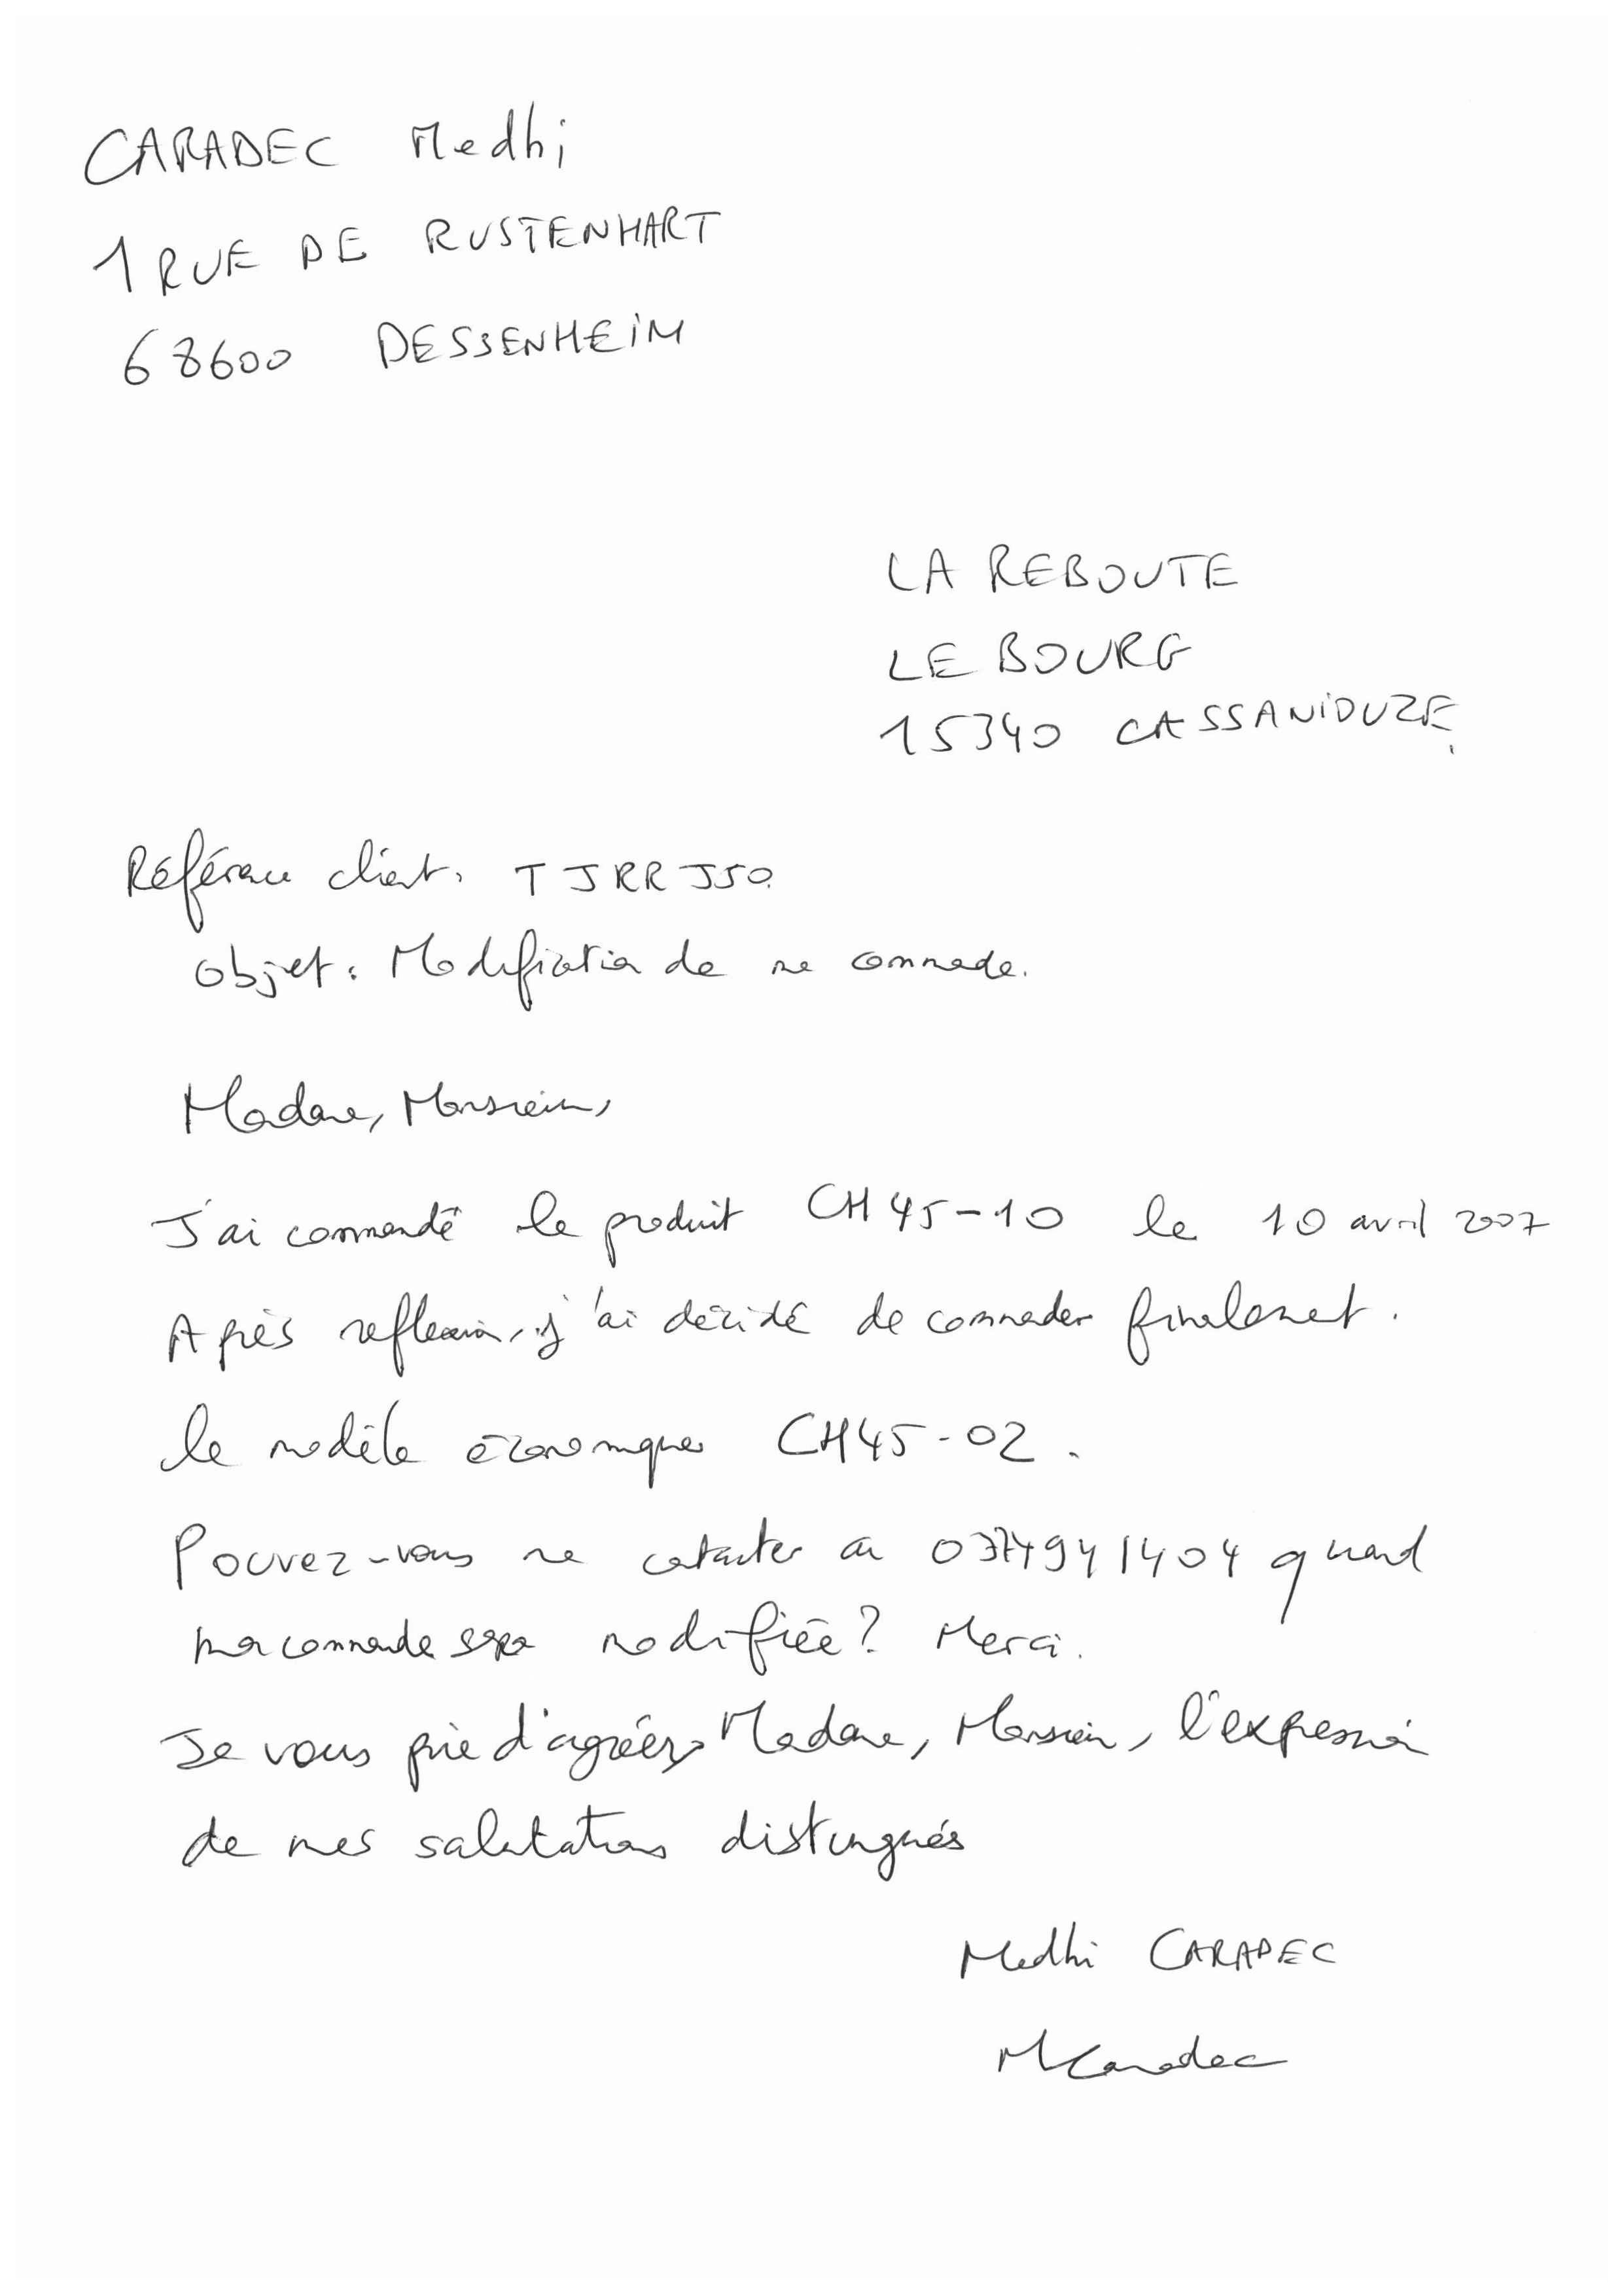 CARADEC Medhi
1 RUE DE RUSTENHART
68600 DESSENHEIM
LA REBOUTE
LE BOURG
15340 CASSANIOUZE
Référence client. TJRRJ50
Objet : Modification de ma commande.
Madame, Monsieur,
J'ai commandé le produit CH45-10 le 10 avril 2007
Après reflexion, j'ai décidé de commander finalement.
le modèle économique CH45-02.
Pouvez-vous me contacter au 0374941404 quand
ma commande sera modifiée ? Merci.
Je vous prie d'agréer, Madame, Monsieur, l'expression
de mes salutations distingués
Medhi CARADEC
MCaradec